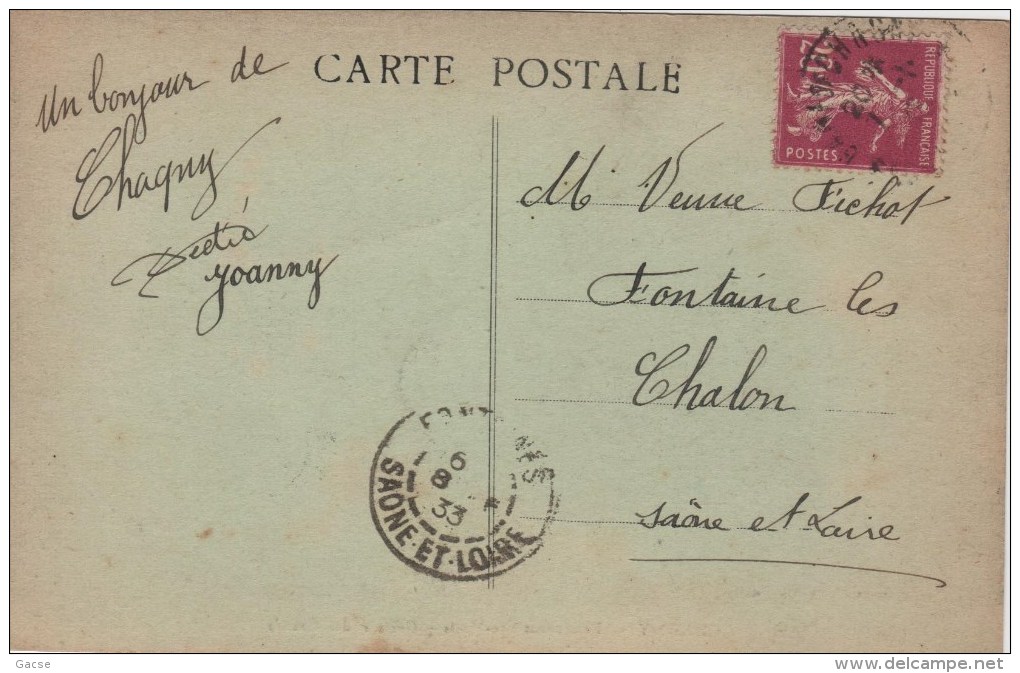 CARTE POSTALE
Un bonjour de
Chagny
Joanny
REPUBLIQUE FRANÇAISE
POSTES
M Veuve Fichot
Fontaine les
Chalon
Saône et Loire
6
8
33
SAÔNE-ET-LOIRE
Gacse
www.delcampe.net